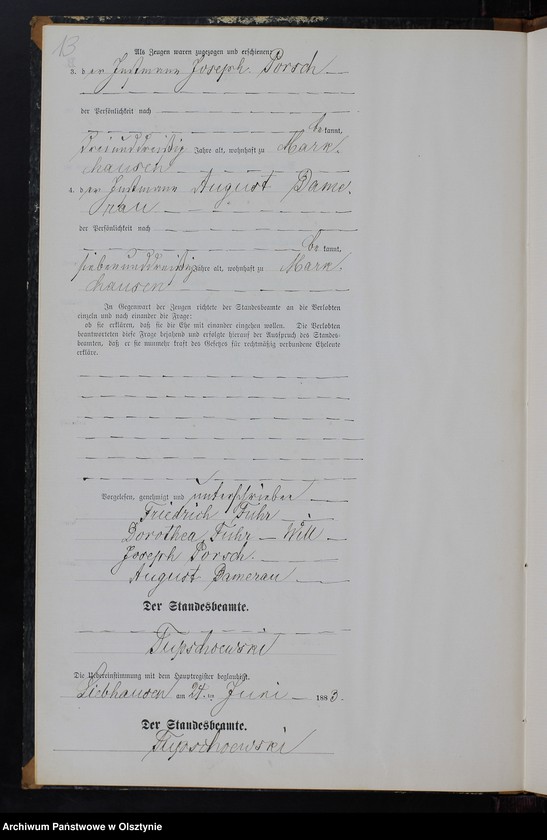 13
Als Zeugen waren zugezogen und erschienen:
3. der Instmann Joseph Porsch
der Persönlichkeit nach
be kannt,
dreiunddreißig Jahre alt, wohnhaft zu Mark-
hausen
4. der Instmann August Dame-
rau
der Persönlichkeit nach
be kannt,
siebenunddreißig Jahre alt, wohnhaft zu Mark-
hausen
In Gegenwart der Zeugen richtete der Standesbeamte an die Verlobten
einzeln und nach einander die Frage:
ob sie erklären, daß sie die Ehe mit einander eingehen wollen. Die Verlobten
beantworteten diese Frage bejahend und erfolgte hierauf der Ausspruch des Standes-
beamten, daß er sie nunmehr kraft des Gesetzes für rechtmäßig verbundene Eheleute
erkläre.
Vorgelesen, genehmigt und unterschrieben
Friedrich Führ
Dorothea Führ – Will
Joseph Porsch.
August Damerau
Der Standesbeamte.
Die Uebereinstimmung mit dem Hauptregister beglaubigt.
Liebhausen am 24. ten Juni 1883.
Der Standesbeamte.
Archiwum Państwowe w Olsztynie